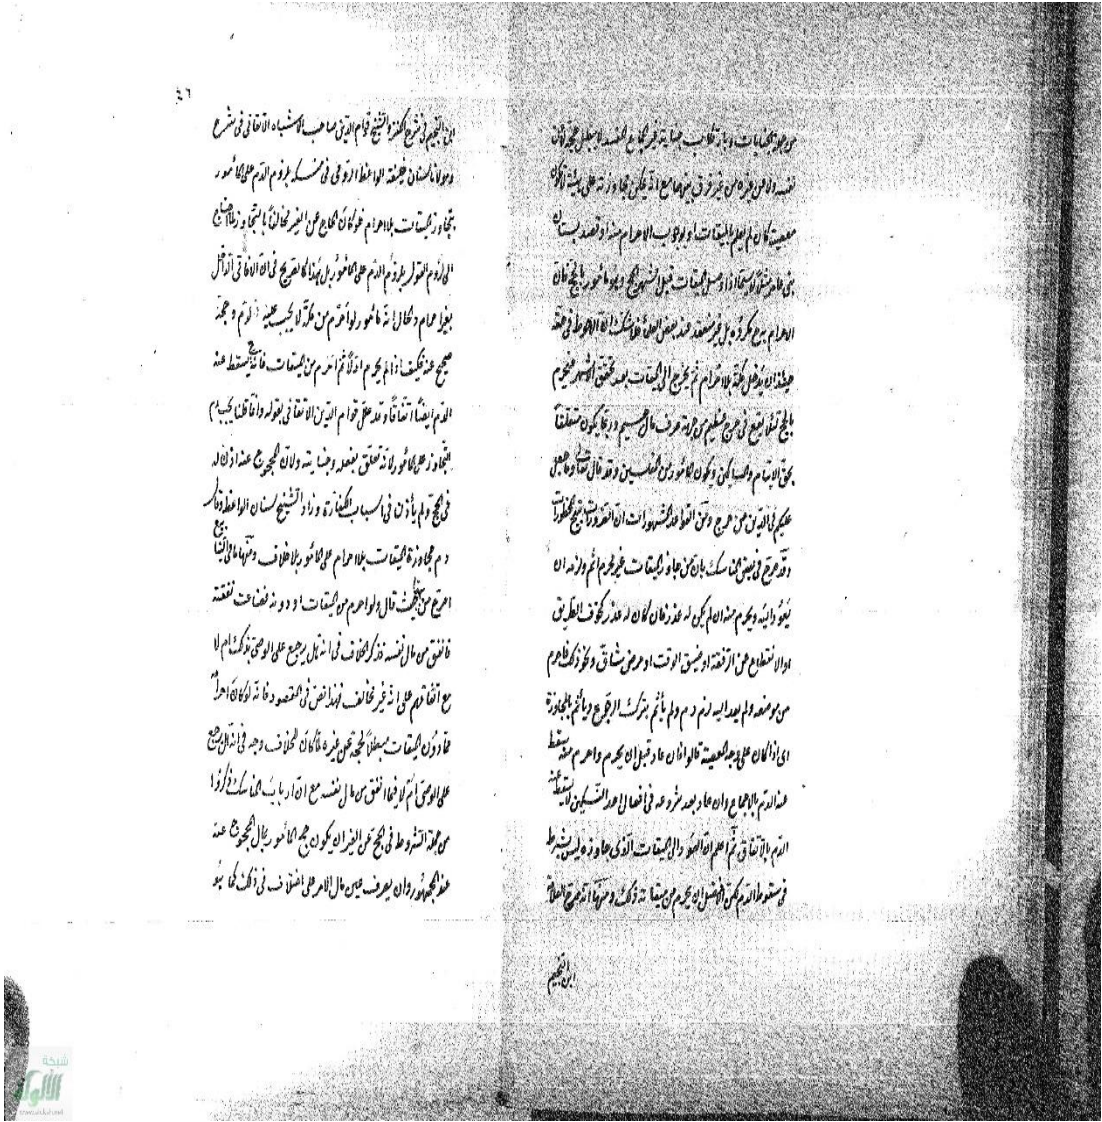 من جملة الجنايات وبارتكاب جناية غير الجماع المفسد لا يبطل حجة فان
لنفسه ولا من غيره من غير فرق بينهما مع انه يمكن مجاوزته على
معصية كان لم يعلم الميقات او لوجوب الاحرام منه او قصد بستان
بنى عامر مثلا لا سيما اذا وصل الميقات قبل اشهر الحج وهو مامور بالحج فان
الاحرام مكروه بل غير منعقد عند بعض العلماء فلا شك ان الاحوط في حقه
حينئذ ان يدخل مكة بلا احرام ثم يخرج الى الميقات بعد تحقق الاشهر فيحرم
بالحج لئلا يقع في حرج عظيم من صرف مال جسيم وربما يكون متعلقا
بحق الايتام والمساكين ويكون المامور من المفلسين وقد قال تعالى وما جعل
عليكم في الدين من حرج ومن القواعد المشهورات ان الضرورات تبيح المحظورات
وقد صرح في بعض المناسك بان من جاوز الميقات غير محرم اثم ولزمه ان
يعود اليه ويحرم منه ان لم يكن له عذر فان كان له عذر كخوف الطريق
او الانقطاع عن الرفقة او ضيق الوقت او مرض شاق ونحو ذلك فاحرم
من موضعه ولم يعد اليه لزم دم ولم ياثم بترك الرجوع وياثم بالمجاوزة
اى اذا كان على وجه المعصية قالوا فان عاد قبل ان يحرم واحرم منه سقط
عنه الدم بالاجماع وان عاد بعد شروعه في افعال احد النسكين لا يسقط عنه
الدم بالاتفاق ثم اعلم ان العود الى الميقات الذى جاوزه ليس بشرط
في سقوط الدم لكن الافضل ان يحرم من ميقاته ذلك ومنها انه صرح العلامة
ابن النجيم
٤٦
ابن النجيم في شرح الكنز والشيخ قوام الدين صاحب الاشباه الاتقانى في شرح
ومولانا سنان خليفة الواعظ الرومى في منسكه بلزوم الدم على المامور
بتجاوز الميقات بلا احرام فلو كان الحاج عن الغير مخالفا بالتجاوز لما احتاج
الى لزوم القول بلزوم الدم على المامور بل هذا كالصريح في ان الافاقى اذا دخل
بغير احرام والحال انه مامور لو احرم من مكة لا يجب عليه الا دم وحجه
صحيح عنه فكيف اذا لم يحرم اولا ثم احرم من الميقات فانه ح يسقط عنه
الدم ايضا اتفاقا وقد علل قوام الدين الاتقانى بقوله وانما قلنا يجب دم
التجاوز على المامور لانه تعلق بفعله وجنايته ولان المحجوج عنه اذن له
في الحج ولم ياذن في اسباب الكفارة وزاد الشيخ سنان الواعظ وقال
دم مجاوزة الميقات بلا احرام على المامور بلا خلاف ومنها ما في الينابيع
اصرح من حيث قال ولو احرم من الميقات او دونه فضاعت نفقته
فانفق من مال نفسه فذكر الخلاف في انه هل يرجع على الوصى بذلك ام لا
مع اتفاقهم على انه غير مخالف فهذا نص في المقصود فانه لو كان احرامه
مما دون الميقات مبطلا لحجه عن غيره لما كان للخلاف وجه في انه هل يرجع
على الوصى ام لا فيما انفق من مال نفسه مع ان ارباب المناسك ذكروا
من جملة الشروط في الحج عن الغير ان يكون حج المامور بمال المحجوج عنه
عند الجمهور وان يصرف عين مال الامر على اختلاف في ذلك كما هو
شبكة
الألوكة
www.alukah.net